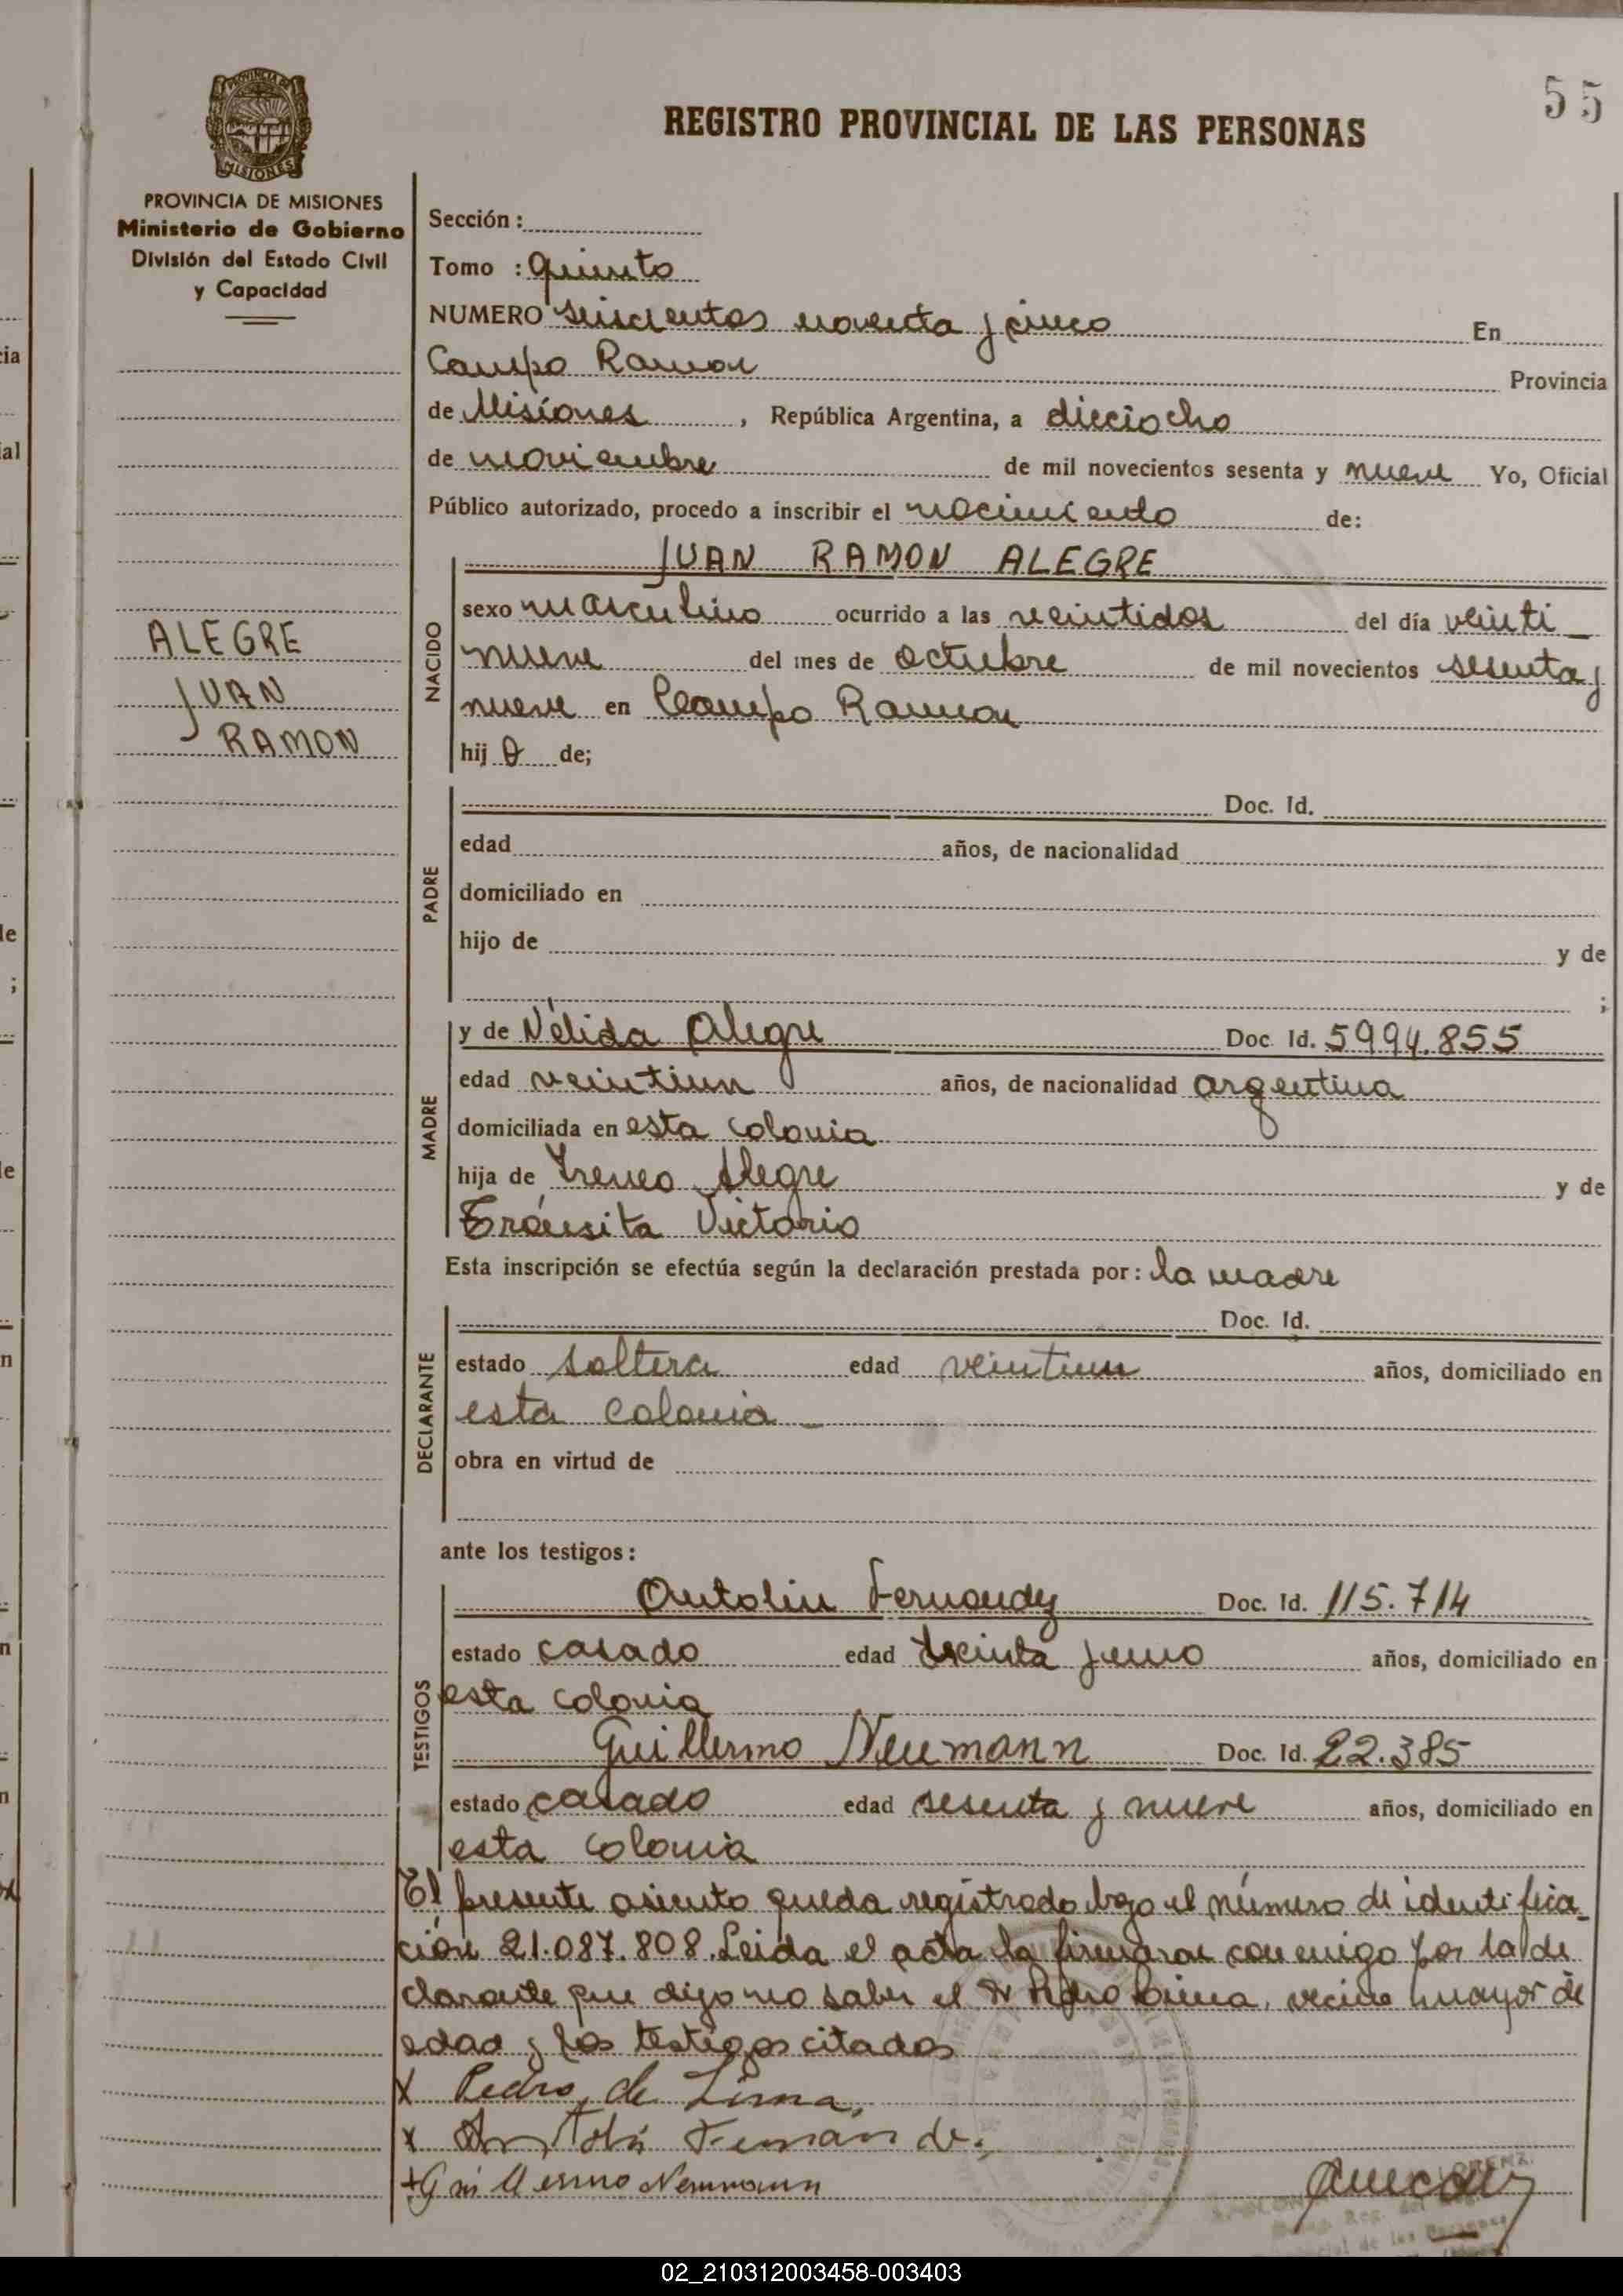 55
REGISTRO PROVINCIAL DE LAS PERSONAS
PROVINCIA DE MISIONES
Ministerio de Gobierno
División del Estado Civil
y Capacidad
ALEGRE
JUAN
RAMON
Sección:
Tomo : quinto
NUMERO seiscientos noventa y cinco En
Campo Ramon Provincia
de Misiones, República Argentina, a dieciocho
de noviembre de mil novecientos sesenta y nueve Yo, Oficial
Público autorizado, procedo a inscribir el nacimiento de:
NACIDO
JUAN RAMON ALEGRE
sexo masculino ocurrido a las veintidos del día veinti_
nueve del mes de octubre de mil novecientos sesenta y
nueve en Campo Ramon
hij o de;
PADRE
Doc. Id.
edad años, de nacionalidad
domiciliado en
hijo de y de
;
MADRE
y de Nélida Alegre Doc. Id. 5994.855
edad veintiun años, de nacionalidad argentina
domiciliada en esta colonia
hija de Ireneo Alegre y de
Tránsita Victorio
Esta inscripción se efectúa según la declaración prestada por: la madre
DECLARANTE
Doc. Id.
estado soltera edad veintiun años, domiciliado en
esta colonia _
obra en virtud de
ante los testigos:
TESTIGOS
Antolin Fernandez Doc. Id. 115.714
estado casado edad treinta y uno años, domiciliado en
esta colonia
Guillermo Neumann Doc. Id. 22.385
estado casado edad sesenta y nueve años, domiciliado en
esta colonia
El presente asiento queda registrado bajo el número de identifica_
ción 21.087.808. Leida el acta la firmaron conmigo por la de
clarante que dijo no saber el Sr Pedro Lima, vecino mayor de
edad y los testigos citados
x Pedro de Lima,
x Fernánde.
+ Guillermo Neumann
02_210312003458-003403